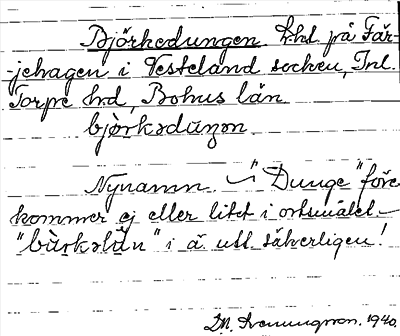 Björkedungen. Lht. på Får-
-jehagen i Vesteland socken, Inl.
Torpe hd, Bohus län
bjòrkədúŋən.
Nynamn – "Dunge" före
kommer ej eller litet i ortsmålet –
"bùrkəlùn" i ä. utt. säkerligen!
M. Svenungsson. 1940